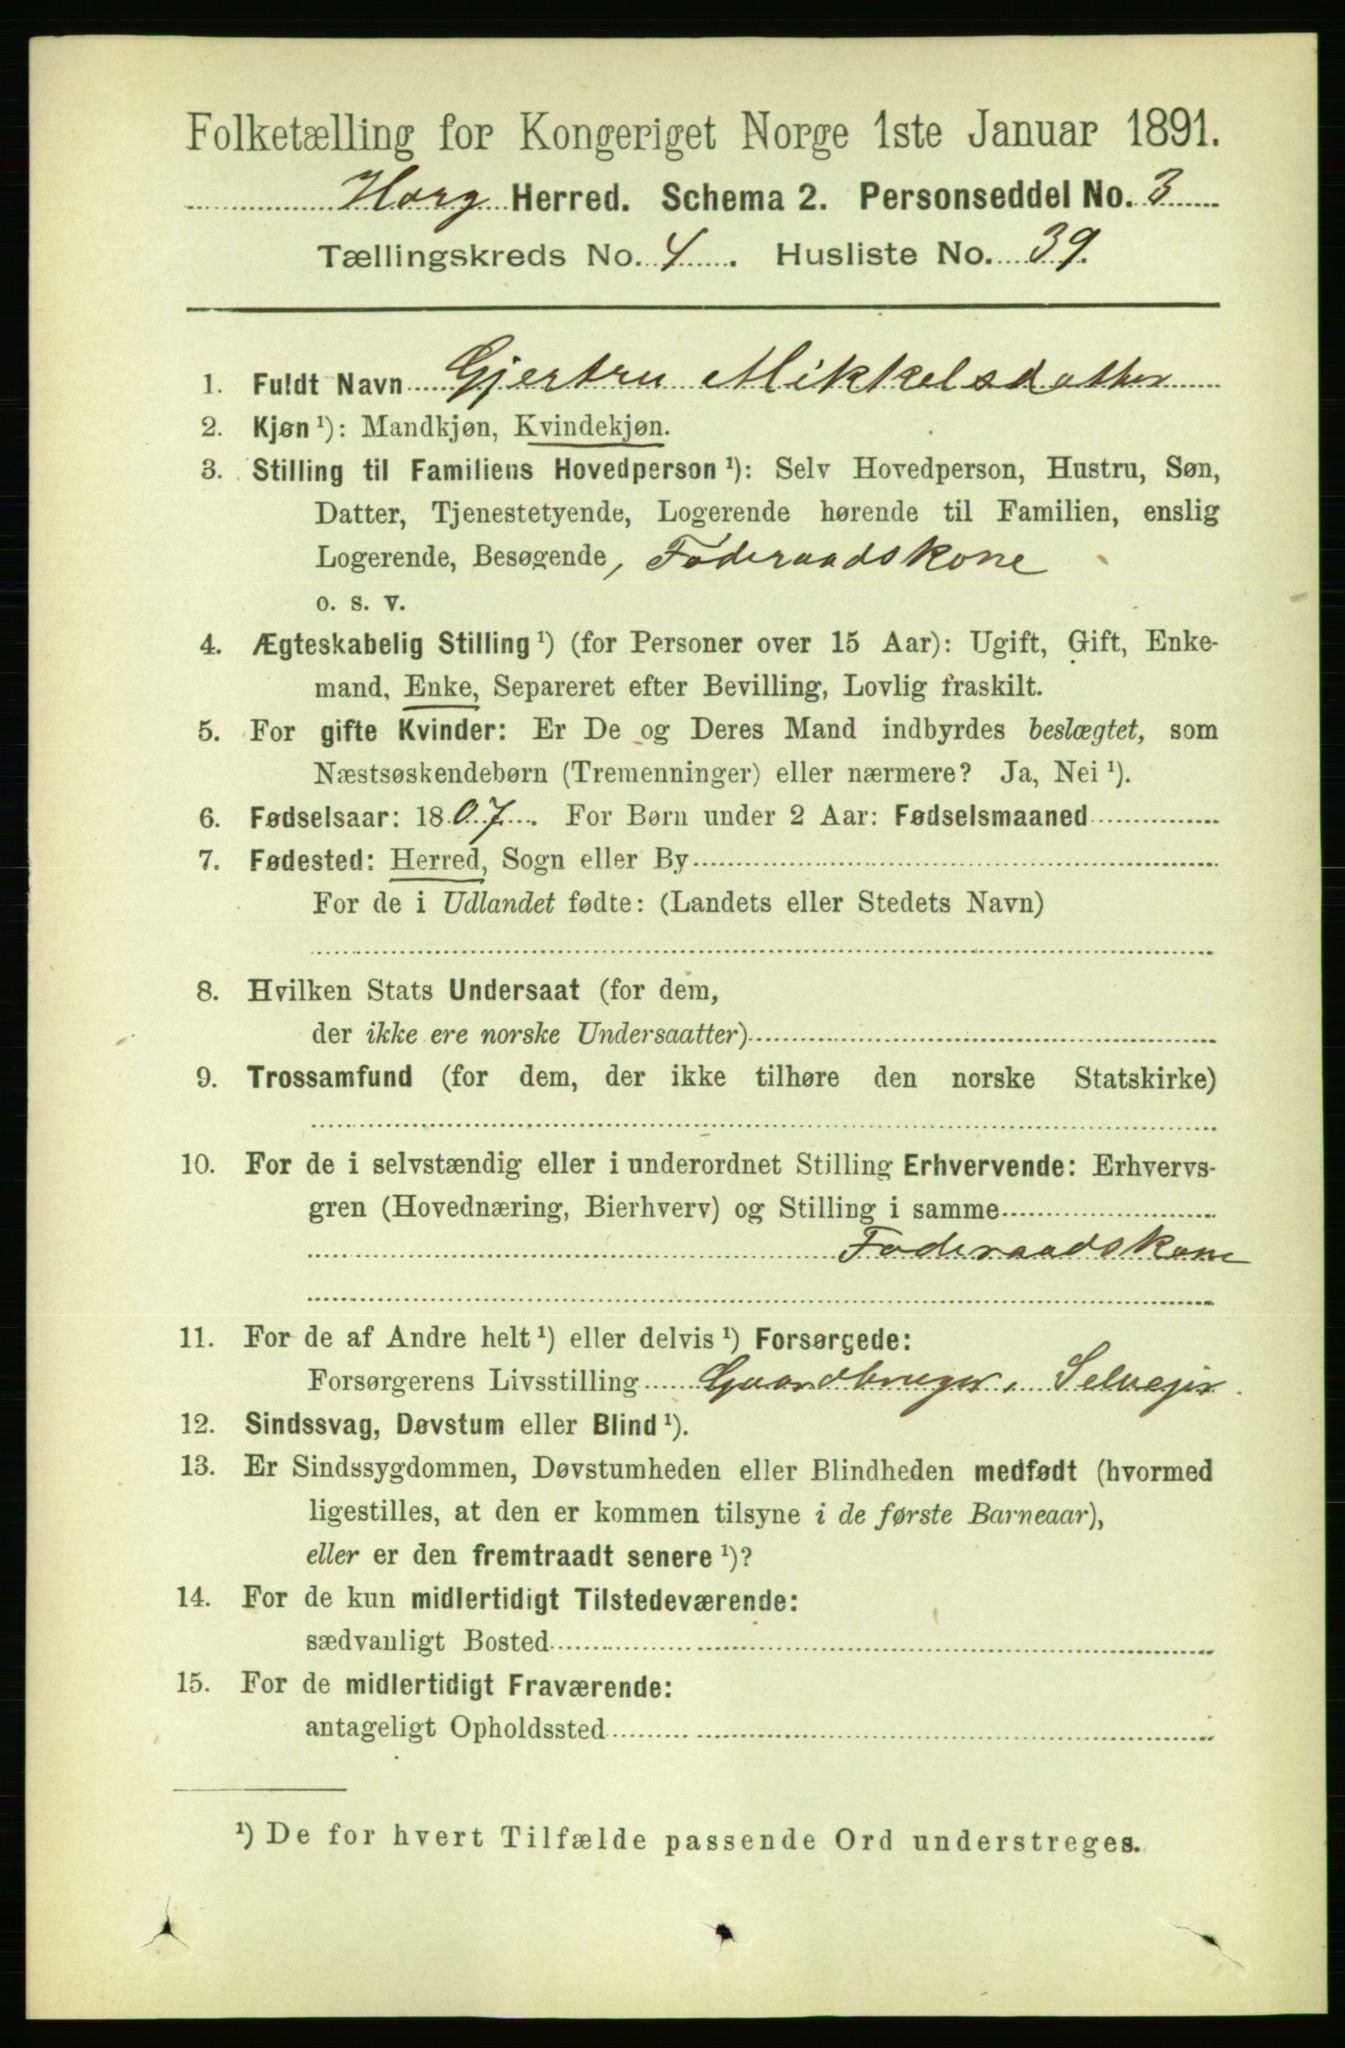 Folketælling for Kongeriget Norge 1ste Januar 1891.
Horg Herred. Schema 2. Personseddel No. 3
Tællingskreds No. 4. Husliste No. 39.
1. Fuldt Navn Gjertru Mikkelsdatter
2. Kjøn ¹): Mandkjøn, Kvindekjøn.
3. Stilling til Familiens Hovedperson ¹): Selv Hovedperson, Hustru, Søn,
Datter, Tjenestetyende, Logerende hørende til Familien, enslig
Logerende, Besøgende, Føderaadskone
o. s. v.
4. Ægteskabelig Stilling ¹) (for Personer over 15 Aar): Ugift, Gift, Enke-
mand, Enke, Separeret efter Bevilling, Lovlig fraskilt.
5. For gifte Kvinder: Er De og Deres Mand indbyrdes beslægtet, som
Næstsøskendebørn (Tremenninger) eller nærmere? Ja, Nei ¹).
6. Fødselsaar: 1807. For Børn under 2 Aar: Fødselsmaaned
7. Fødested: Herred, Sogn eller By
For de i Udlandet fødte: (Landets eller Stedets Navn)
8. Hvilken Stats Undersaat (for dem,
der ikke ere norske Undersaatter)
9. Trossamfund (for dem, der ikke tilhøre den norske Statskirke)
10. For de i selvstændig eller i underordnet Stilling Erhvervende: Erhvervs-
gren (Hovednæring, Bierhverv) og Stilling i samme
Føderaadskone
11. For de af Andre helt ¹) eller delvis ¹) Forsørgede:
Forsørgerens Livsstilling Gaardbruger, Selvejer.
12. Sindssvag, Døvstum eller Blind ¹).
13. Er Sindssygdommen, Døvstumheden eller Blindheden medfødt (hvormed
ligestilles, at den er kommen tilsyne i de første Barneaar),
eller er den fremtraadt senere ¹)?
14. For de kun midlertidigt Tilstedeværende:
sædvanligt Bosted
15. For de midlertidigt Fraværende:
antageligt Opholdssted
¹) De for hvert Tilfælde passende Ord understreges.